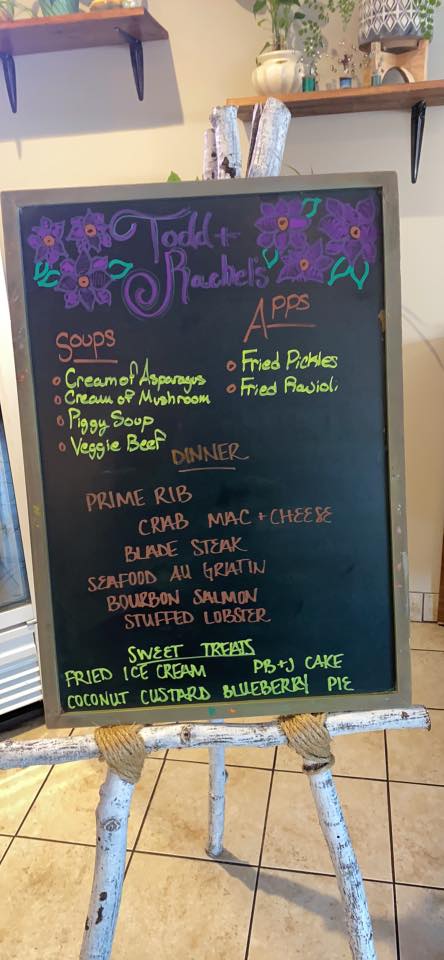 Todd +
Rachel's
Soups
Cream of Asparagus
Cream of Mushroom
Piggy Soup
Veggie Beef
Apps
Fried Pickles
Fried Ravioli
DINNER
PRIME RIB
CRAB MAC + CHEESE
BLADE STEAK
SEAFOOD AU GRATIN
BOURBON SALMON
STUFFED LOBSTER
SWEET TREATS
FRIED ICE CREAM PB+J CAKE
COCONUT CUSTARD BLUEBERRY PIE